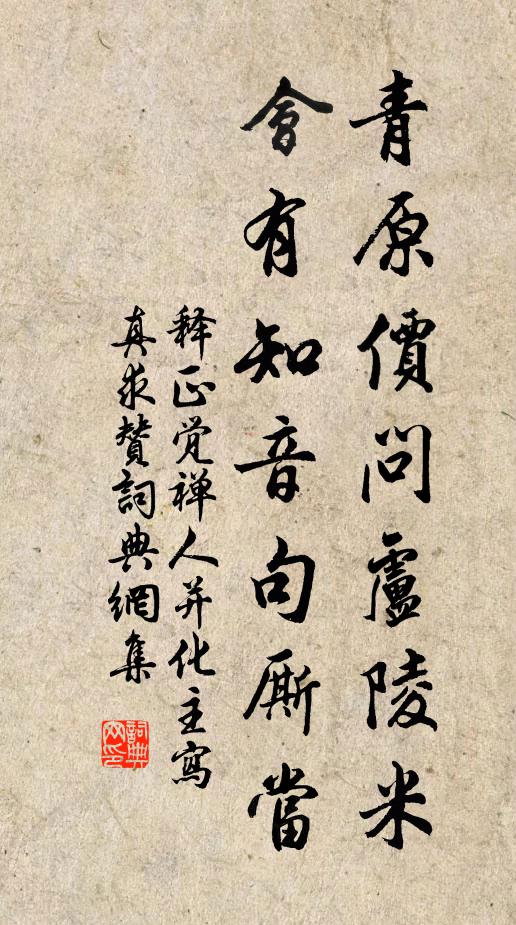 青原價問廬陵米
會有知音句厮當
释正觉禅人并化主寫
真求贊詞典網集
詞典網印